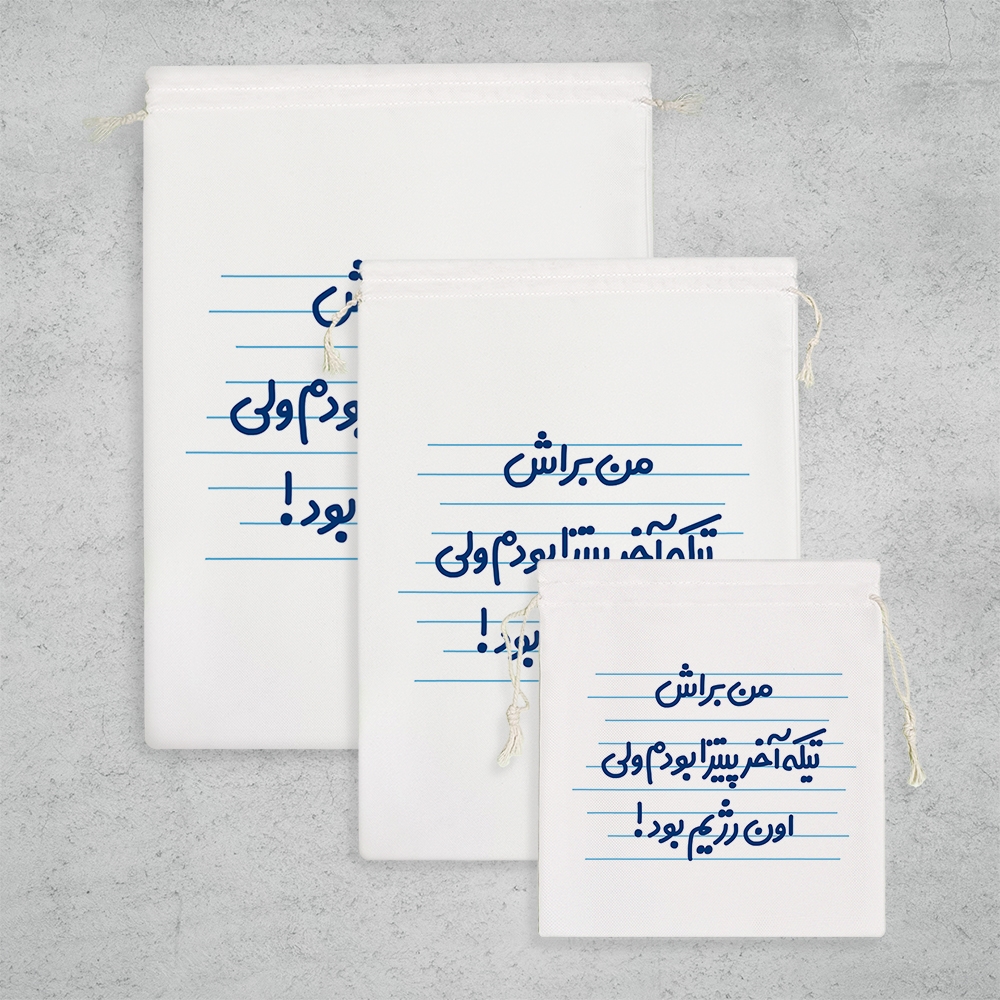 من براش
تیکه آخر پیتزا بودم ولی
اون رژیم بود!
من براش
تیکه آخر پیتزا بودم ولی
بود!
ش
بودم ولی
بود!